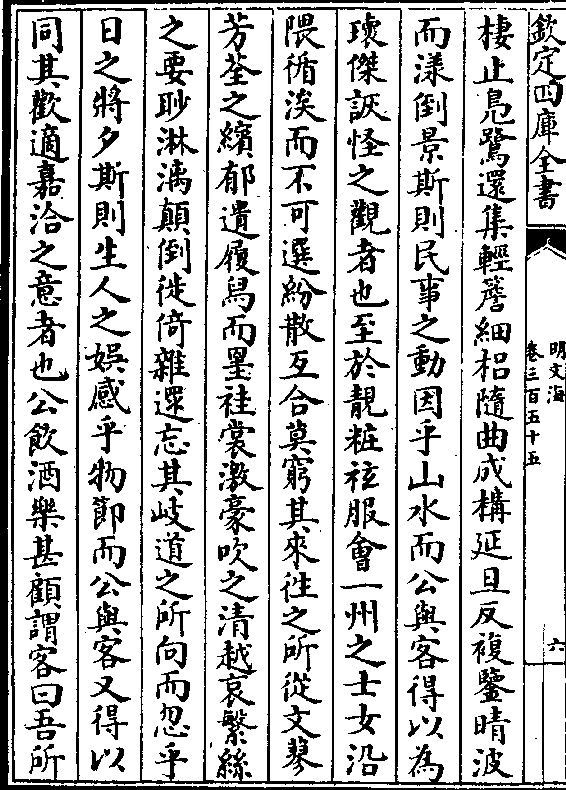 欽定四庫全書
明文海
卷三百五十五
六
棲止鳧鷺還集輕簷細梠隨曲成構延亘反複鑒晴波
而漾倒景斯則民事之動因乎山水而公與客得以為
瓌傑詼怪之觀者也至於靚粧袨服會一州之士女沿
隈循涘而不可選紛散互合莫窮其來徃之所從文蓼
芳荃之繽郁遺履舄而罣袿裳激豪吹之清越哀繁絲
之要眇淋漓顛倒徙倚雜還忘其岐道之所向而忽乎
日之將夕斯則生人之娱感乎物節而公與客又得以
同其歡適嘉洽之意者也公飲酒樂甚顧謂客曰吾所